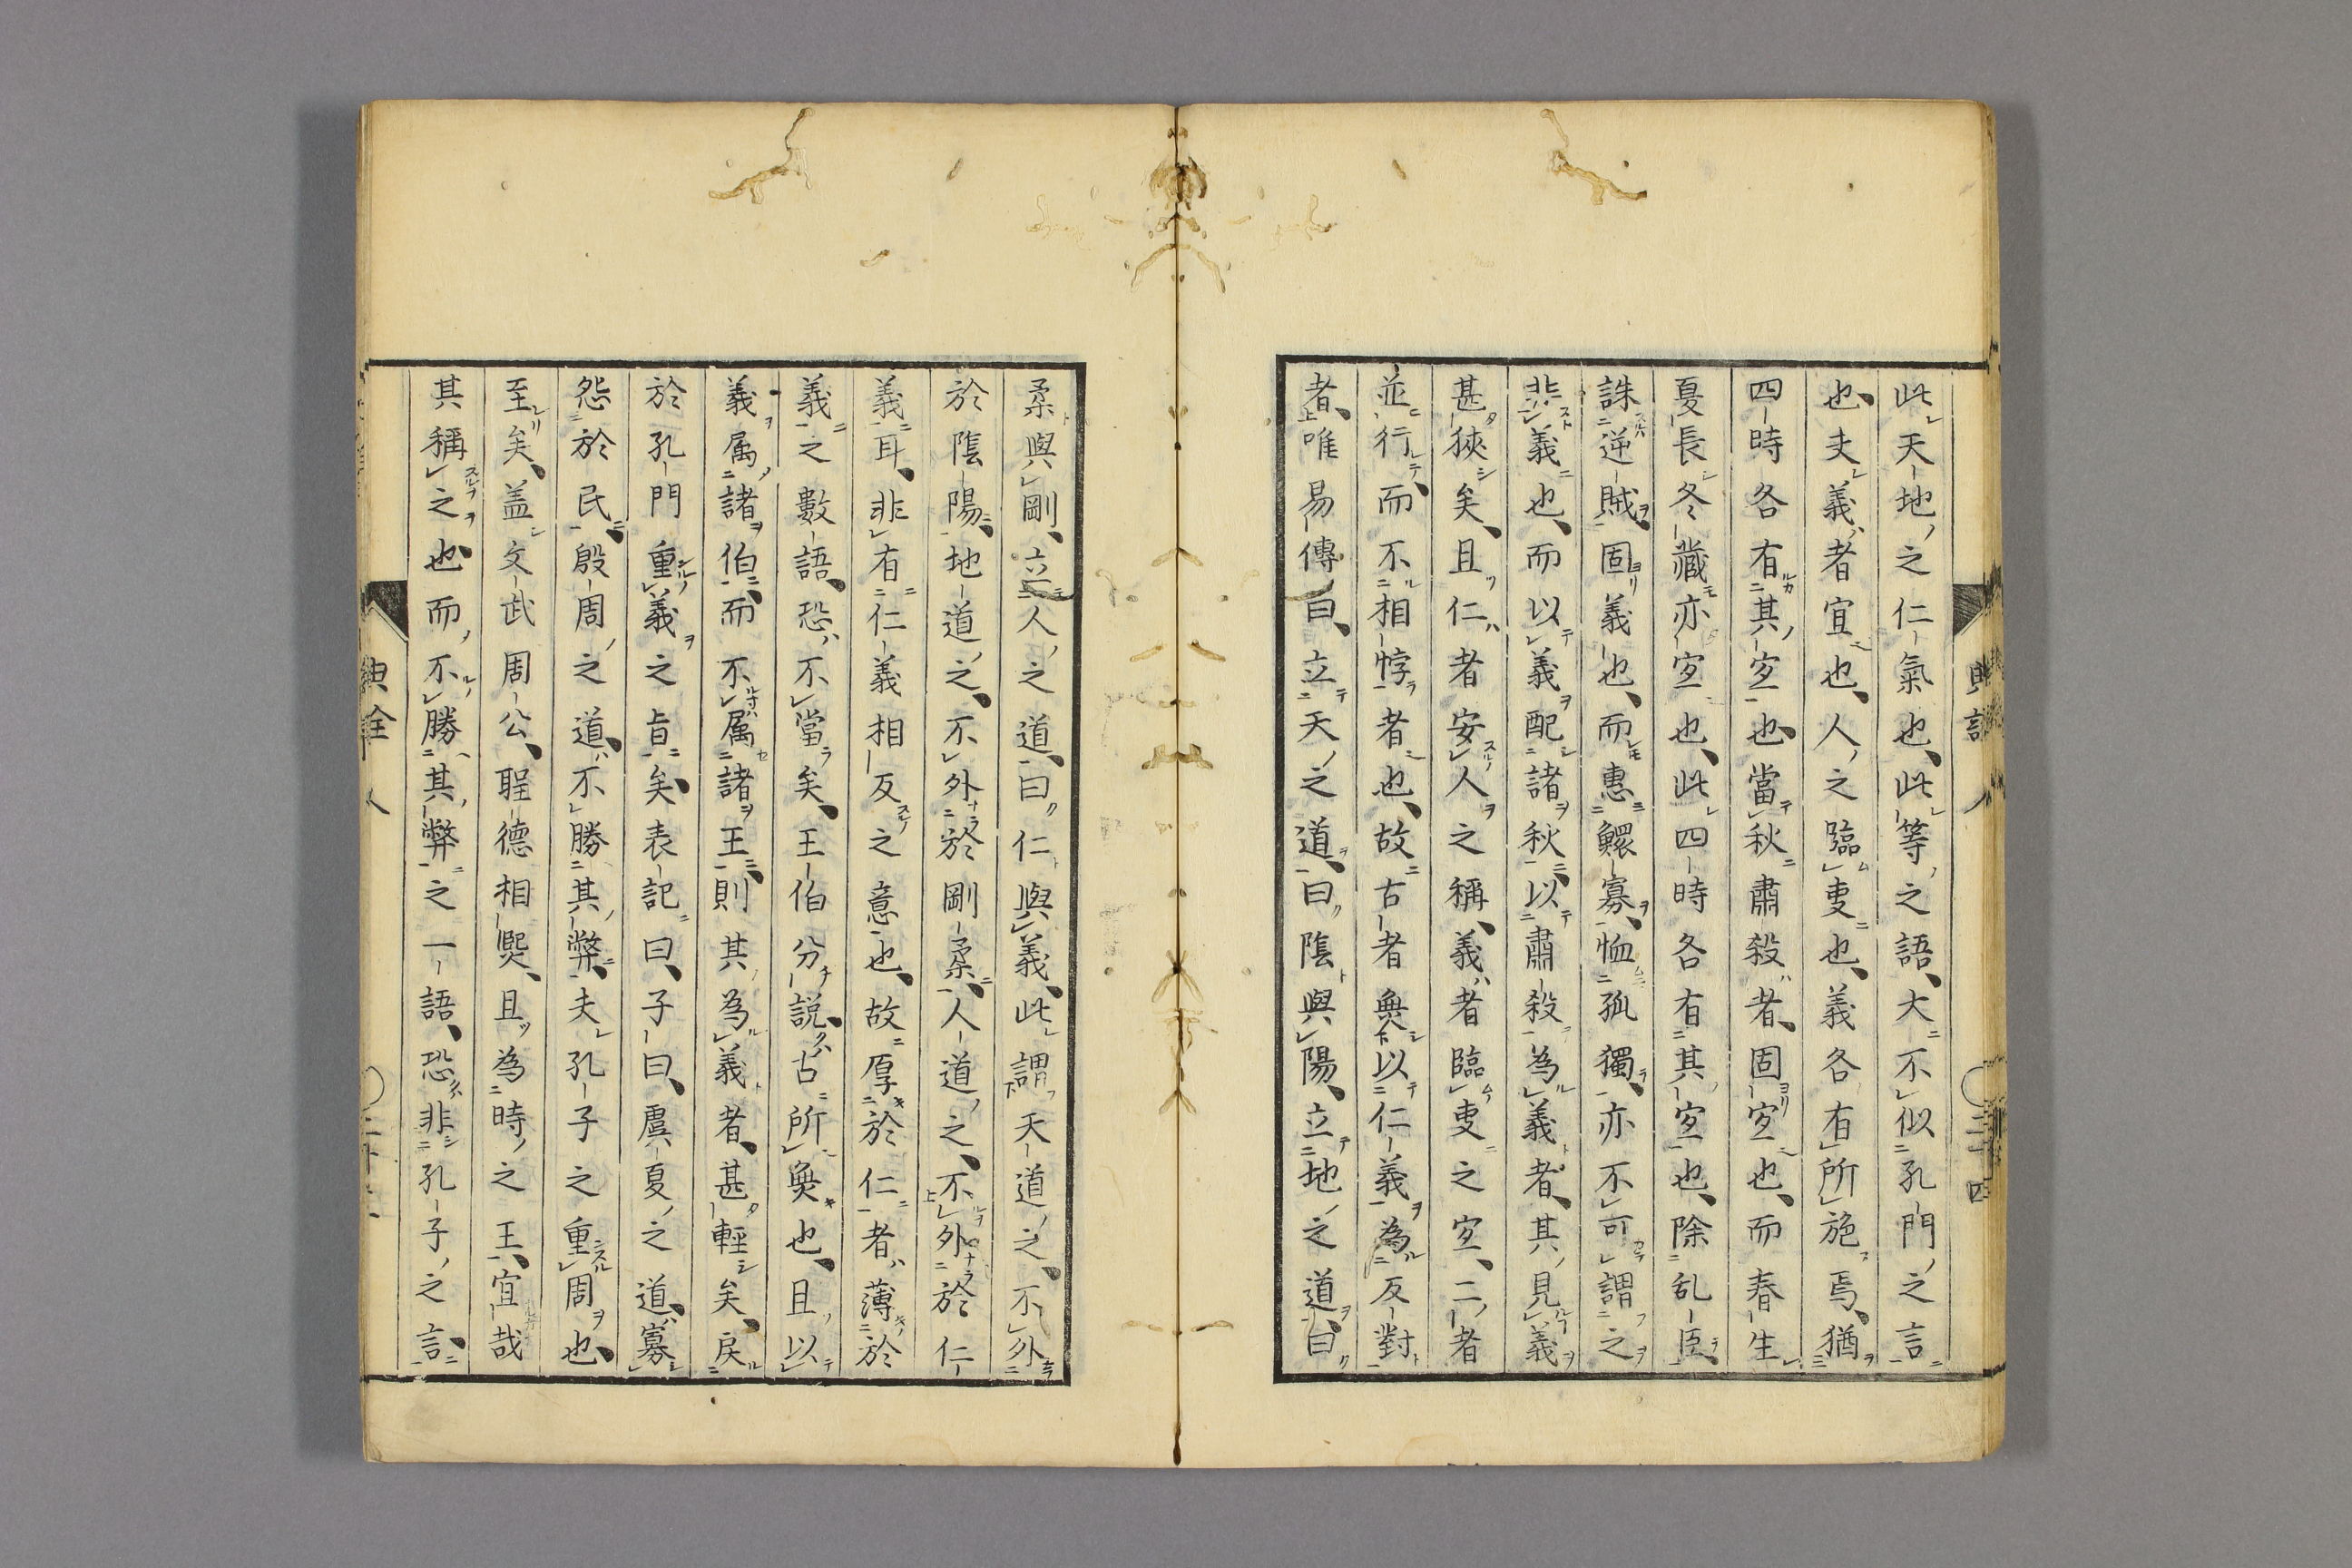 此天地之仁氣也、此等之語、大不似孔門之言
也、夫義者宜也、人之臨叓也、義各有所施焉、猶
四時各有其宐也、當秋肅殺者、固宐也、而春生
夏長冬藏亦宐也、此四時各有其宐也、除乱臣
誅逆賊、固義也、而惠鰥寡、恤孤獨、亦不可謂之
非義也、而以義配諸秋、以肅殺為義者、其見義
甚狹矣、且仁者安人之稱、義者臨叓之宐、二者
並行、而不相悖者也、故古者無以仁義為反對
者、唯易傳曰、立天之道、曰陰與陽、立地之道、曰
柔與剛、立人之道、曰仁與義、此謂天道之、不外
於陰陽、地道之、不外於剛柔、人道之、不外於仁
義耳、非有仁義相反之意也、故厚於仁者薄於
義之數語、恐不當矣、王伯分說、古所無也、且以
義属諸伯、而不属諸王、則其為義者、甚輕矣、戾
於孔門重義之旨矣、表記曰、子曰、虞夏之道、寡
怨於民、殷周之道、不勝其弊、夫孔子之重周也、
至矣、盖文武周公、聖德相熈、且為時之王、宜哉
其稱之也、而不勝其弊之一語、恐非孔子之言、
典詮 人